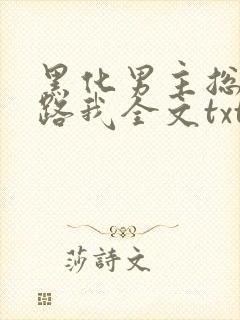 黑化男主总
路我全文txt
莎詩文